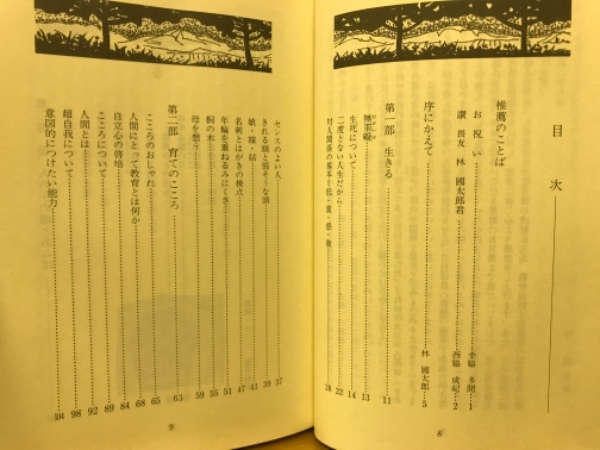 目次
推薦のことば
お祝い 幸脇 多聞…1
讃 畏友 林 國太郎君 西脇 成紀…2
序にかえて 林 國太郎…5
第一部 生きる 11
無罣礙 13
生死について 14
二度とない人生だから 22
対人関係の基本 28
8
センスのよい人 37
きれる頭と弱そうな頭 39
娘・嫁・姑 41
名刺とはがきの接点 47
年輪を重ねるみにくさ 51
桐の木 55
母を想う 59
第二部 育てのこころ 63
こころのおしゃれ 65
人間にとって教育とは何か 68
自立心の啓培 84
こころについて 89
人間とは 92
超自我について 98
意図的につけたい能力 104
9